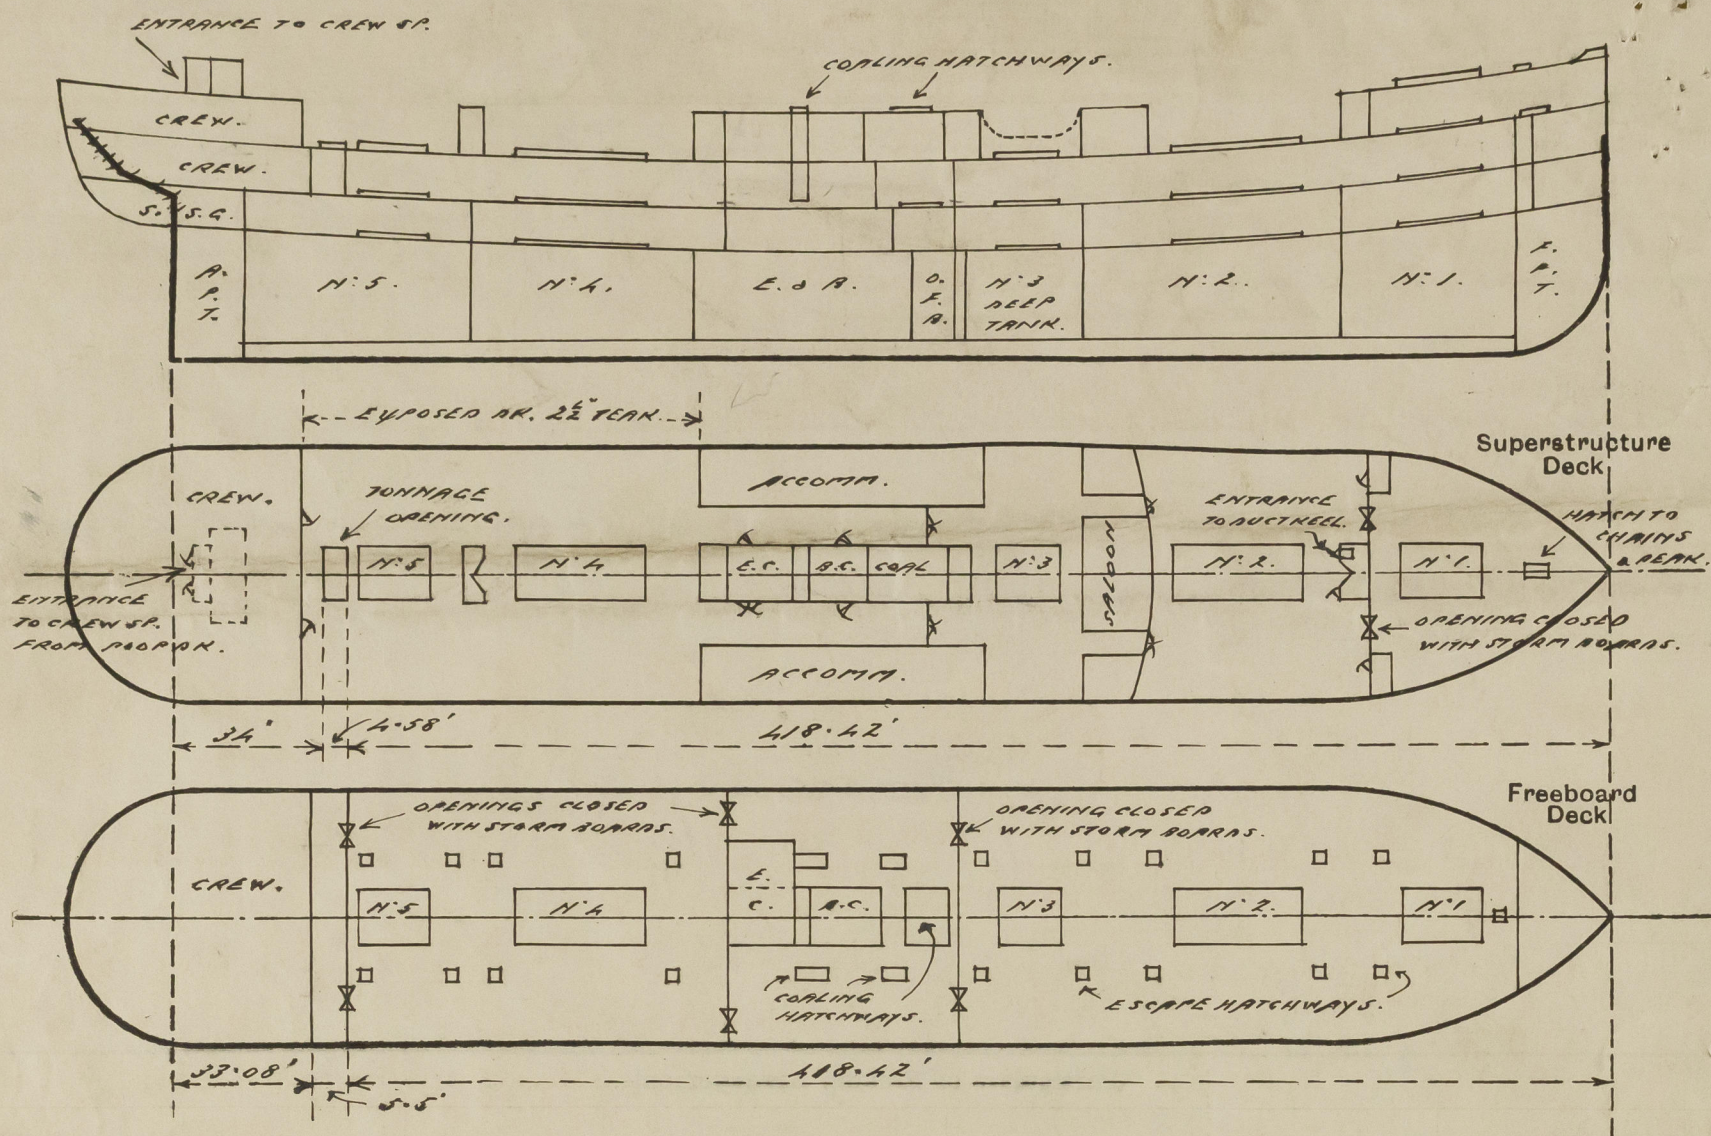 ENTRANCE TO CREW SP.
COALING HATCHWAYS.
CREW.
CREW.
S. G.
A.
P.
T.
Nº 5.
Nº 4.
E. & B.
O.
F.
B.
Nº 3
DEEP
TANK.
Nº 2.
Nº 1.
F.
P.
T.
EXPOSED DK. 2½" TEAK.
Superstructure
Deck
CREW.
TONNAGE
OPENING.
ACCOMM.
ENTRANCE
TO DUCT KEEL.
HATCH TO
CHAINS
& PEAK.
Nº 5
Nº 4
E.C.
B.C.
COAL
Nº 3
SALOON
Nº 2.
Nº 1.
ENTRANCE
TO CREW SP.
FROM POOP DK.
OPENING CLOSED
WITH STORM BOARDS.
ACCOMM.
34'
4·58'
418·42'
Freeboard
Deck
OPENINGS CLOSED
WITH STORM BOARDS.
OPENING CLOSED
WITH STORM BOARDS.
CREW.
Nº 5
Nº 4
E.
C.
B.C.
Nº 3
Nº 2.
Nº 1
COALING
HATCHWAYS.
ESCAPE HATCHWAYS.
33·08'
5·5'
418·42'